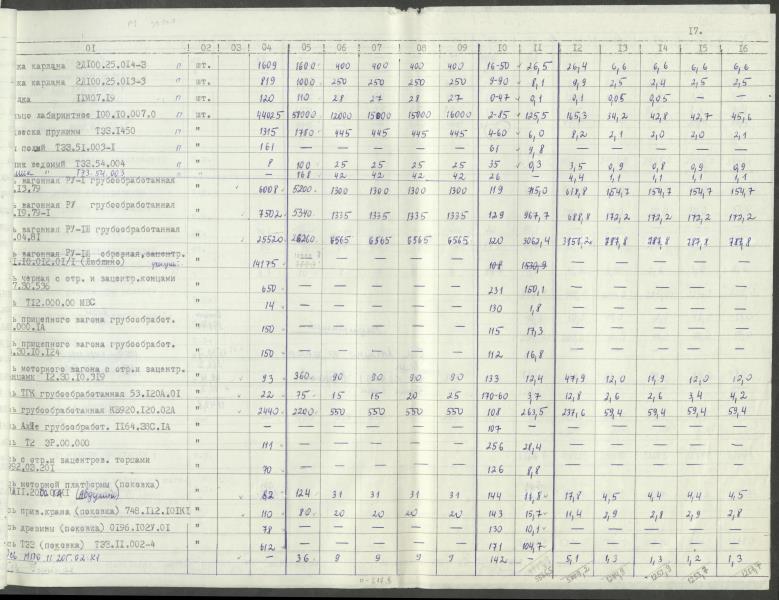 17.
01 02 03 04 05 06 07 08 09 10 11 12 13 14 15 16
ка кардана 2Д100.25.014-3 п шт. 1609 1600 400 400 400 400 16-50 26,5 26,4 6,6 6,6 6,6 6,6
ка кардана 2Д100.25.013-3 п шт. 819 1000 250 250 250 250 9-90 8,1 9,9 2,5 2,4 2,5 2,5
дка ПМ07.19 п шт. 120 110 28 27 28 27 0-47 0,1 0,1 0,05 0,05 — —
льцо лабиринтное 100.10.007.0 п шт. 44025 58000 12000 15000 15000 16000 2-85 125,5 165,3 34,2 42,8 42,7 45,6
веска пружины ТЭЗ.1450 " 1315 1780 445 445 445 445 4-60 6,0 8,2 2,1 2,0 2,0 2,1
полий ТЭЗ.51.003-1 " 161 — — — — — 61 9,8 — — — — —
ник ведомый ТЭЗ.54.004 " 8 100 25 25 25 25 35 0,3 3,5 0,9 0,8 0,9 0,9
" ТЭЗ.54.003 — 168 42 42 42 42 26 — 4,4 1,1 1,1 1,1 1,1
ь вагонная РУ-I грубообработанная
.13.79 " 6008 5200 1300 1300 1300 1300 119 715,0 618,8 154,7 154,7 154,7 154,7
ь вагонная РУ грубообработанная
.19.79-1 " 7502 5340 1335 1335 1335 1335 129 967,7 688,8 172,2 172,2 172,2 172,2
ь вагонная РУ-III грубообработанная
.04.01 " 25520 26260 6565 6565 6565 6565 120 3062,4 3151,2 787,8 787,8 787,8 787,8
ь вагонная РУ-III обрезная, зацентр.
1.10.012.01/1 (Люблино) " 14175 — — — — 108 1530,9 — — — — —
ь черная с отр. и зацентр.концами
7.30.536 " 650 — — — — — 231 150,1 — — — — —
ь Т12.000.00 МВС " 14 — — — — — 130 1,8 — — — — —
ь прицепного вагона грубообработ.
.000.1А " 150 — — — — — 115 17,3 — — — — —
ь прицепного вагона грубообработ.
.30.10.124 " 150 — — — — — 112 16,8 — — — — —
ь моторного вагона с отр.и зацентр.
нцами 12.30.10.919 " 93 360 90 90 90 90 133 12,4 47,9 12,0 11,9 12,0 12,0
ь ТГК грубообработанная 53.120А.01 " 22 75 15 15 20 25 170-60 3,7 12,8 2,6 2,6 3,4 4,2
ь грубообработанная КВ920.120.02А " 2440 2200 550 550 550 550 108 263,5 237,6 59,4 59,4 59,4 59,4
ь грубообработ. П164.38С.1А " — — — — — — 107 — — — — — —
ь Т2 ЭР.00.000 " 111 — — — — — 256 28,4 — — — — —
ь с отр.и зацентров. торцами
992.03.201 " 70 — — — — — 126 8,8 — — — — —
ь моторной платформы (поковка)
(Абдулино) " 82 124 31 31 31 31 144 11,8 17,8 4,5 4,4 4,4 4,5
ь прив.крана (поковка) 748.112.101К1 " 110 80 20 20 20 20 143 15,7 11,4 2,9 2,8 2,9 2,8
ь дрезины (поковка) 0196.102У.01 " 78 — — — — — 130 10,1 — — — — —
ь ТЭЗ (поковка) ТЭЗ.11.002-4 " 612 — — — — — 171 104,7 — — — — —
МПО 11 205.02 К1 — 36 9 9 9 9 142 — 5,1 1,3 1,3 1,2 1,3